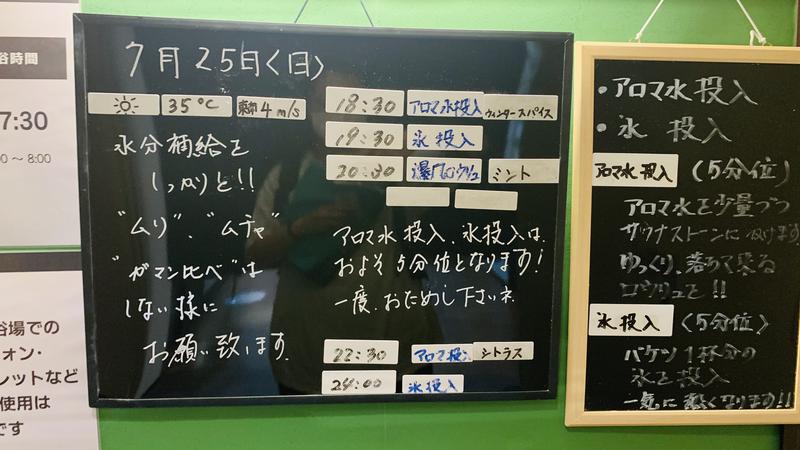 谷時間
7:30
0 ～ 8:00
谷場での
ォン・
レットなど
使用は
です
7月25日(日)
35℃
4m/s
水分補給を
しっかりと!!
"ムリ"、"ムチャ"
"ガマン比べ"は
しない様に
お願い致します。
18:30 アロマ水投入 ウィンタースパイス
19:30 氷投入
20:30 爆風ロウリュ ミント
アロマ水投入、氷投入は、
およそ5分位となります!
一度、おためし下さいネ
22:30 アロマ投入 シトラス
24:00 氷投入
・アロマ水投入
・氷 投入
アロマ水投入 (5分位)
アロマ水を少量づつ
サウナストーンに かけます
ゆっくり、落ちて来る
ロウリュです!!
氷投入 (5分位)
バケツ1杯分の
氷を投入
一気に熱くなります!!